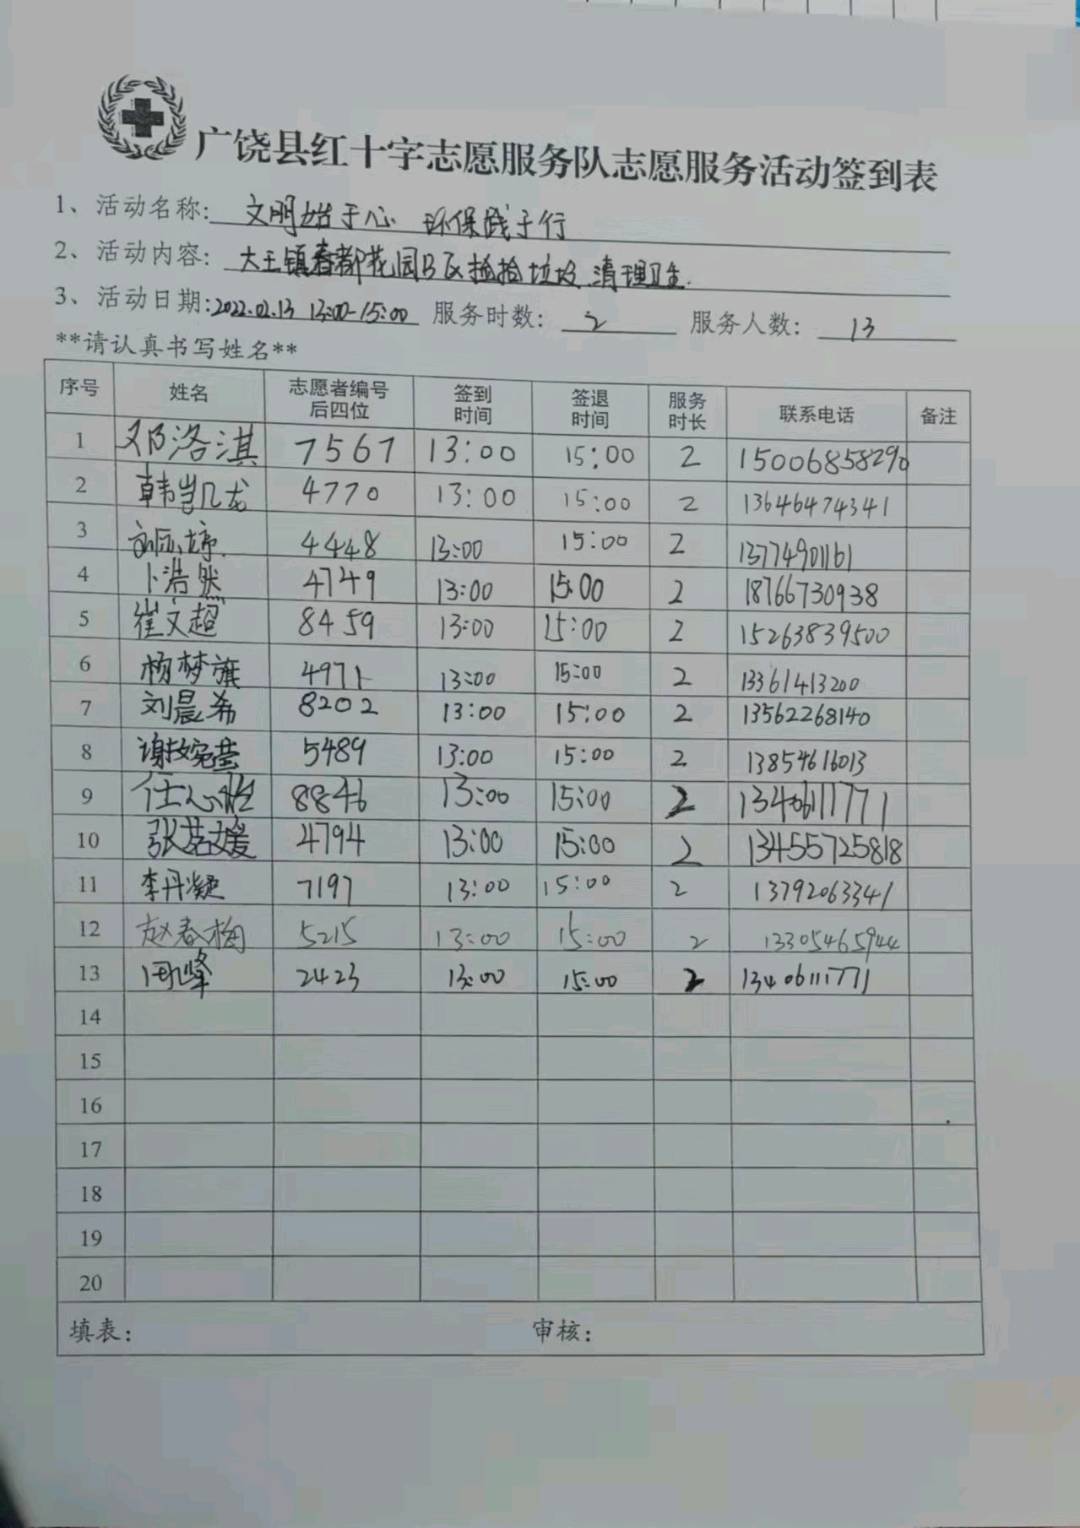 广饶县红十字志愿服务队志愿服务活动签到表
1、活动名称: 文明始于心 环保践于行
2、活动内容: 大王镇春都花园B区捡拾垃圾.清理卫生.
3、活动日期:2022.02.13 13:00-15:00 服务时数: 2 服务人数: 13
**请认真书写姓名**
序号 姓名 志愿者编号后四位 签到时间 签退时间 服务时长 联系电话 备注
1 邓洛淇 7567 13:00 15:00 2 15006858290
2 韩凯龙 4770 13:00 15:00 2 13646474341
3 4448 13:00 15:00 2 13774901161
4 卜浩然 4749 13:00 15:00 2 18766730938
5 崔文超 8459 13:00 15:00 2 15263839500
6 杨梦旗 4971 13:00 15:00 2 13361413200
7 刘晨希 8202 13:00 15:00 2 13562268140
8 5489 13:00 15:00 2 13854616013
9 任心怡 8846 13:00 15:00 2 13406111771
10 张茗媛 4794 13:00 15:00 2 13455725818
11 李丹凝 7197 13:00 15:00 2 13792063341
12 赵春梅 5215 13:00 15:00 2 13305465944
13 周峰 2423 13:00 15:00 2 13406111771
14
15
16
17
18
19
20
填表: 审核: